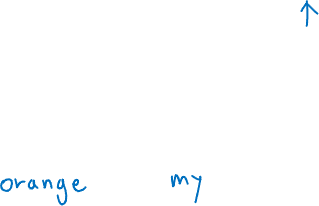 ↑
orange my